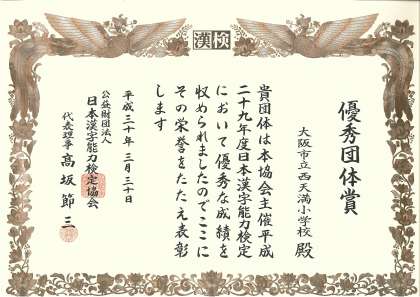 漢検
優秀団体賞
大阪市立西天満小学校 殿
貴団体は本協会主催平成
二十九年度日本漢字能力検定
において優秀な成績を
収められましたのでここに
その栄誉をたたえ表彰
します
平成三十年三月三十日
公益財団法人
日本漢字能力検定協会
代表理事 髙坂節三